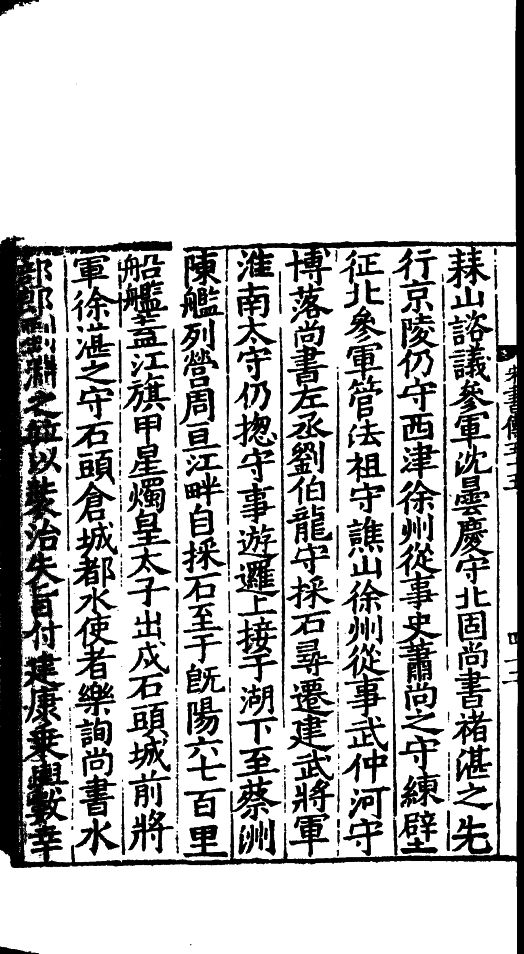 宋書傳五十五
蒜山諮議參軍沈曇慶守北固尚書褚湛之先
行京陵仍守西津徐州從事史蕭尚之守練壁
征北參軍管法祖守譙山徐州從事武仲河守
博落尚書左丞劉伯龍守採石尋遷建武將軍
淮南太守仍揔守事遊邏上接于湖下至蔡洲
陳艦列營周亘江畔自採石至于旣陽六七百里
船艦蓋江旗甲星燭皇太子出戍石頭城前將
軍徐湛之守石頭倉城都水使者樂詢尚書水
部郎劉淵之並以裝治失旨付建康乗輿數幸